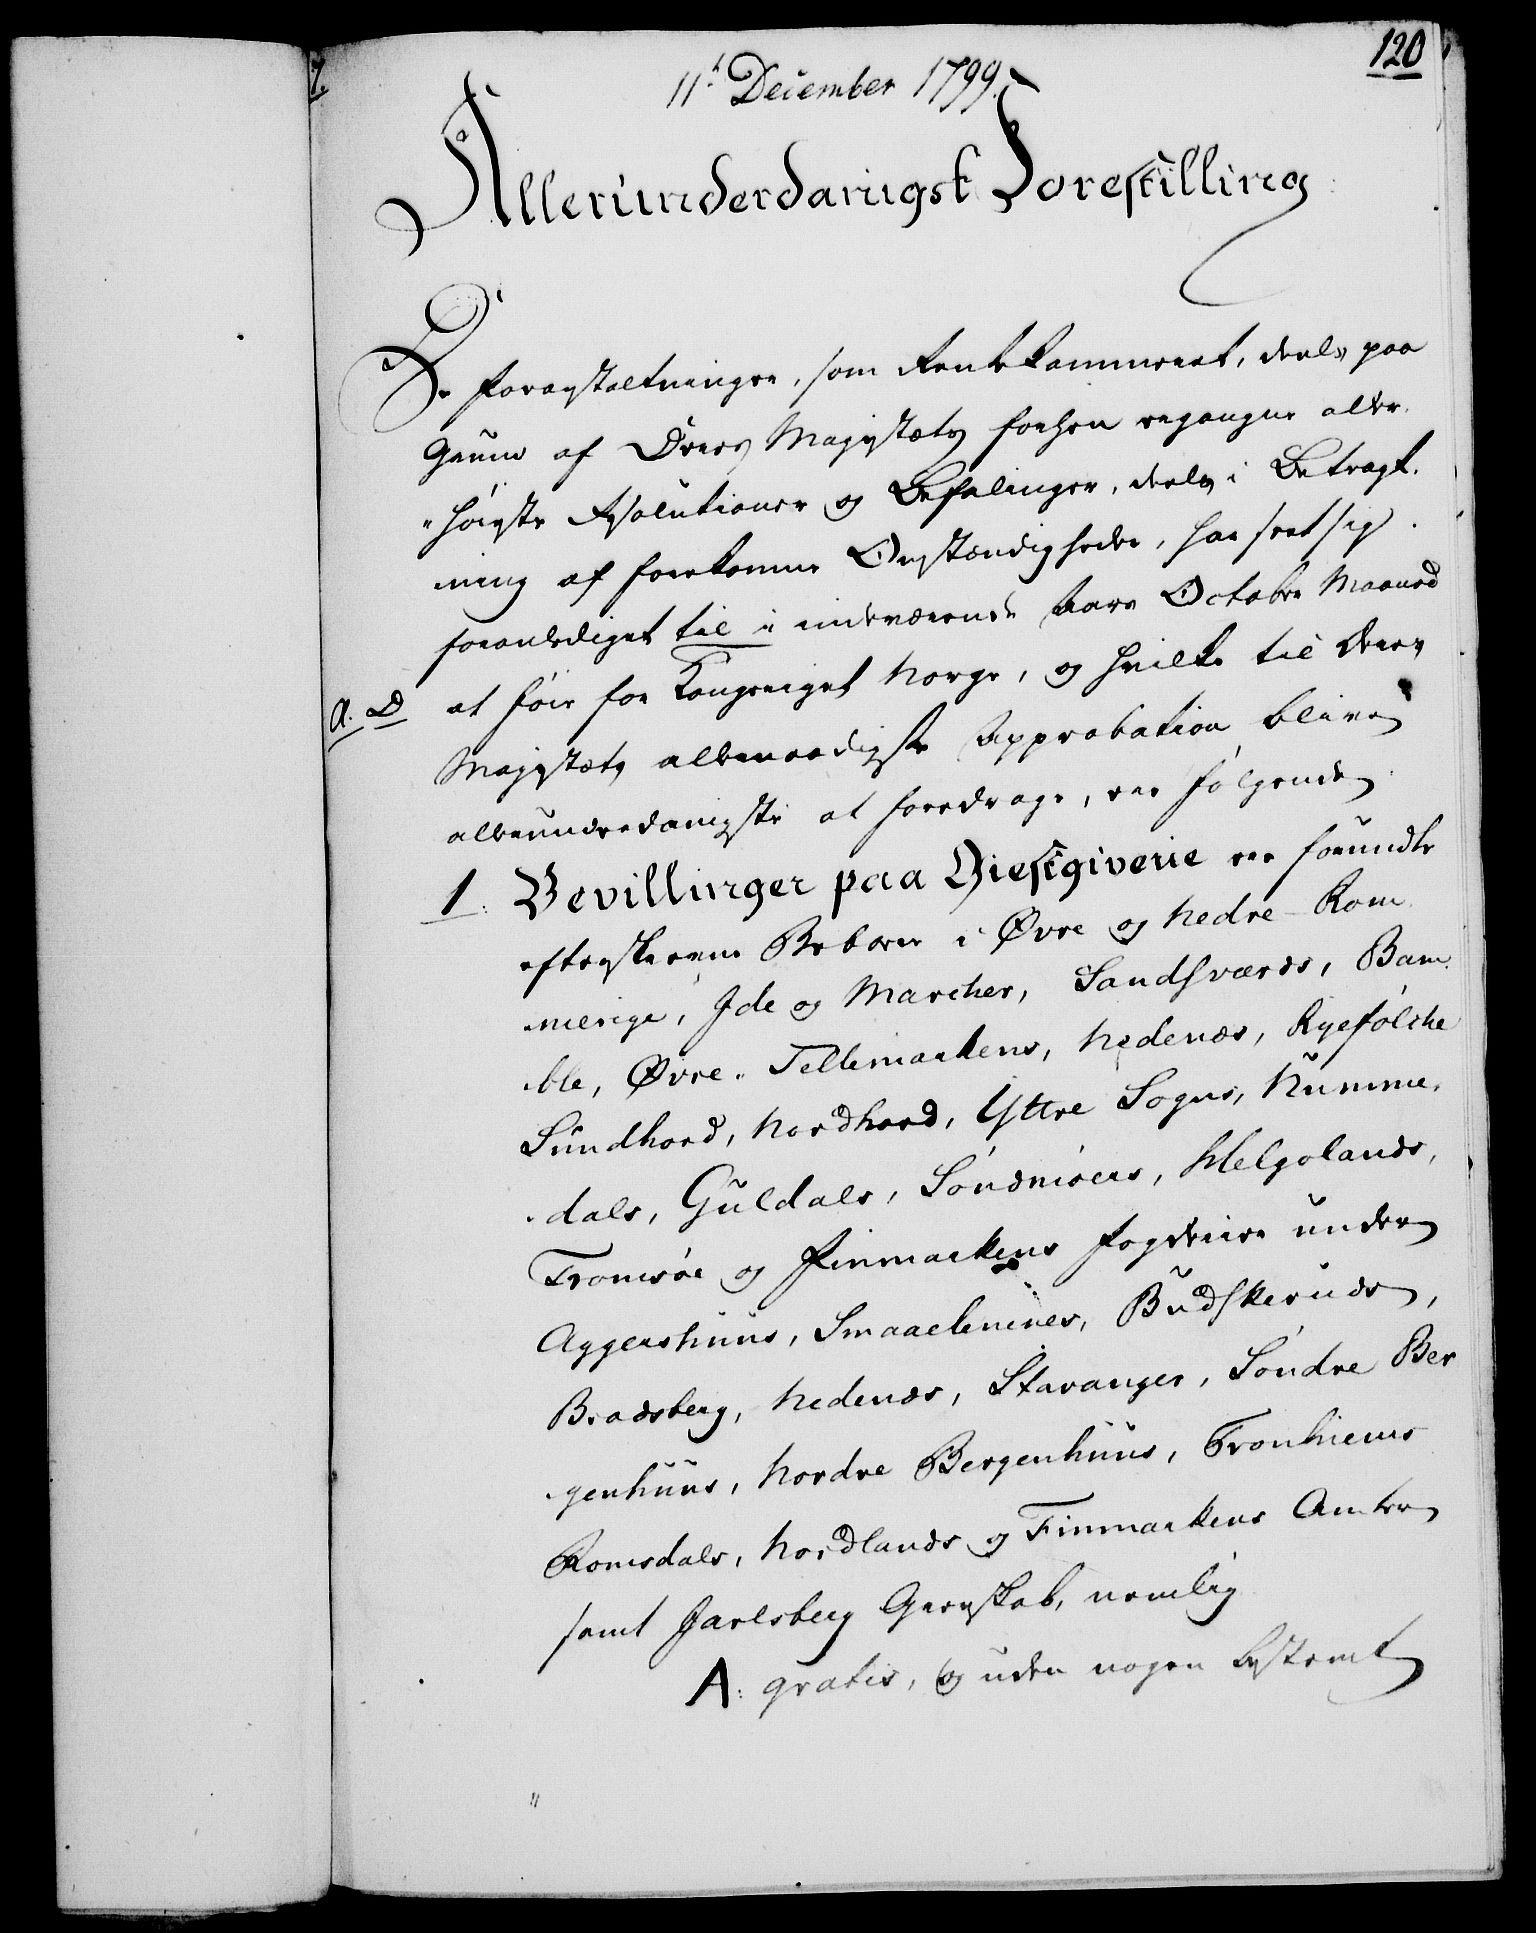 120
11t December 1799.
Allerunderdanigst Forestilling
De Foranstaltninger, som Rentekammeret, deels paa
Grund af Deres Majestæts forhen ergangne aller-
høieste Resolutioner og Befalinger, deels i Betragt-
ning af forekomne Omstændigheder, har seet sig
foranlediget til i indeværende Aars October Maaned
at føie for Kongeriget Norge, og hvilke til Deres
Majestæts allernaadigste Approbation bliver
allerunderdanigst at foredrage, ere følgende
1. Bevillinger paa Giestgiverie ere forundte
efterskrevne Beboere i Øvre og Nedre Rom-
merige, Ide og Marcher, Sandsværds, Bam-
ble, Øvre-Tellemarkens, Nedenæs, Ryefølcke
Sundhord, Nordhord, Yttre Sogns, Numme-
dals, Guldals, Søndmøers, Helgolands,
Tromsøe og Finmarkens Fogderier under
Aggershuus, Smaaelenenes, Budskeruds,
Bradsberg, Nedenæs, Stavanger, Søndre Ber
genhuus, Nordre Bergenhuus, Tronhiems
Romsdals, Nordlands og Finmarkens Amter
samt Jarlsberg Grevskab, nemlig
A: gratis, og uden nogen bestemt